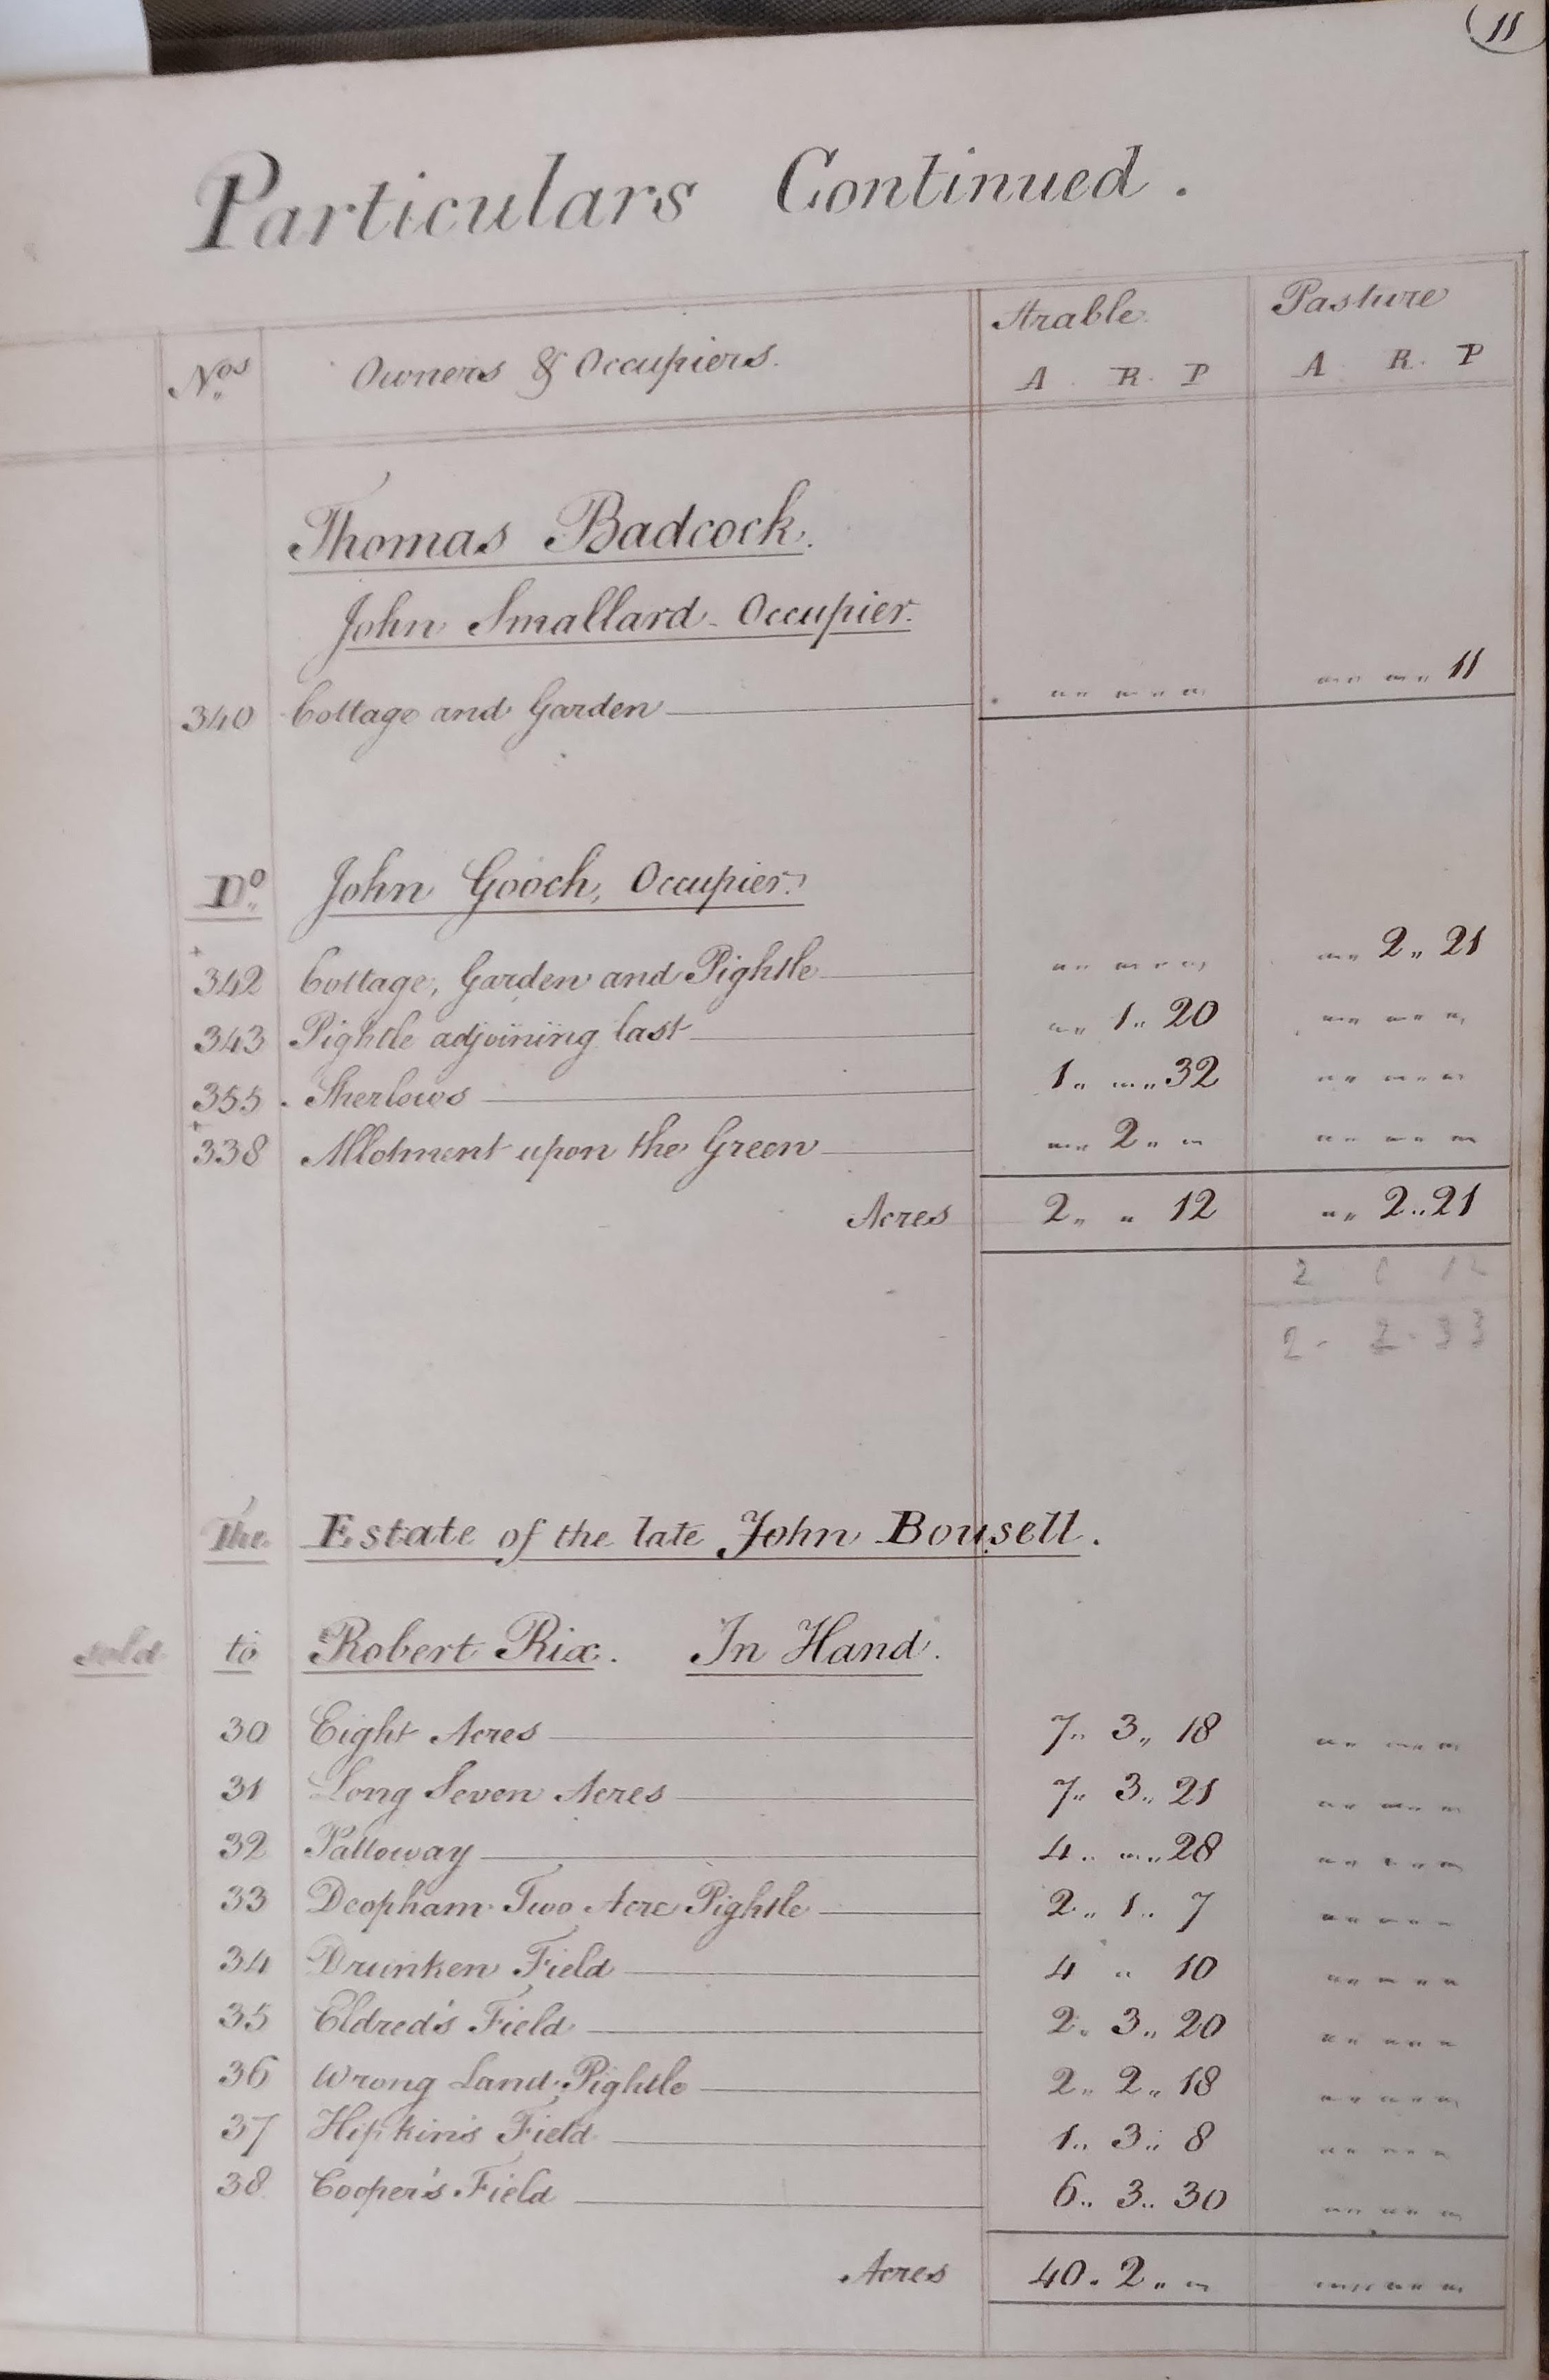 11
Particulars Continued.
Nos Owners & Occupiers. Arable Pasture
A. R. P A R. P
Thomas Badcock.
John Smallard - Occupier.
340 Cottage and Garden " " " " " " 11
Do John Gooch, Occupier.
+
342 Cottage, Garden and Pightle " " " " 2 " 21
343 Pightle adjoining last " 1 " 20 " " "
355 . Sherlows 1 " " 32 " " "
+
338 Allotment upon the Green " 2 " " " " "
Acres 2 " " 12 " 2 " 21
2 0 12
2 - 2 - 33
The Estate of the late John Bousell.
sold to Robert Rix. In Hand.
30 Eight Acres 7 " 3 " 18 " " "
31 Long Seven Acres 7 " 3 " 21 " " "
32 Palloway 4 " " 28 " " "
33 Deopham Two Acre Pightle 2 " 1 " 7 " " "
34 Drunken Field 4 " 10 " " "
35 Eldred's Field 2 " 3 " 20 " " "
36 Wrong Land Pightle 2 " 2 " 18 " " "
37 Hipkin's Field 1 " 3 " 8 " " "
38 Cooper's Field 6 " 3 " 30 " " "
Acres 40 " 2 " " " " "